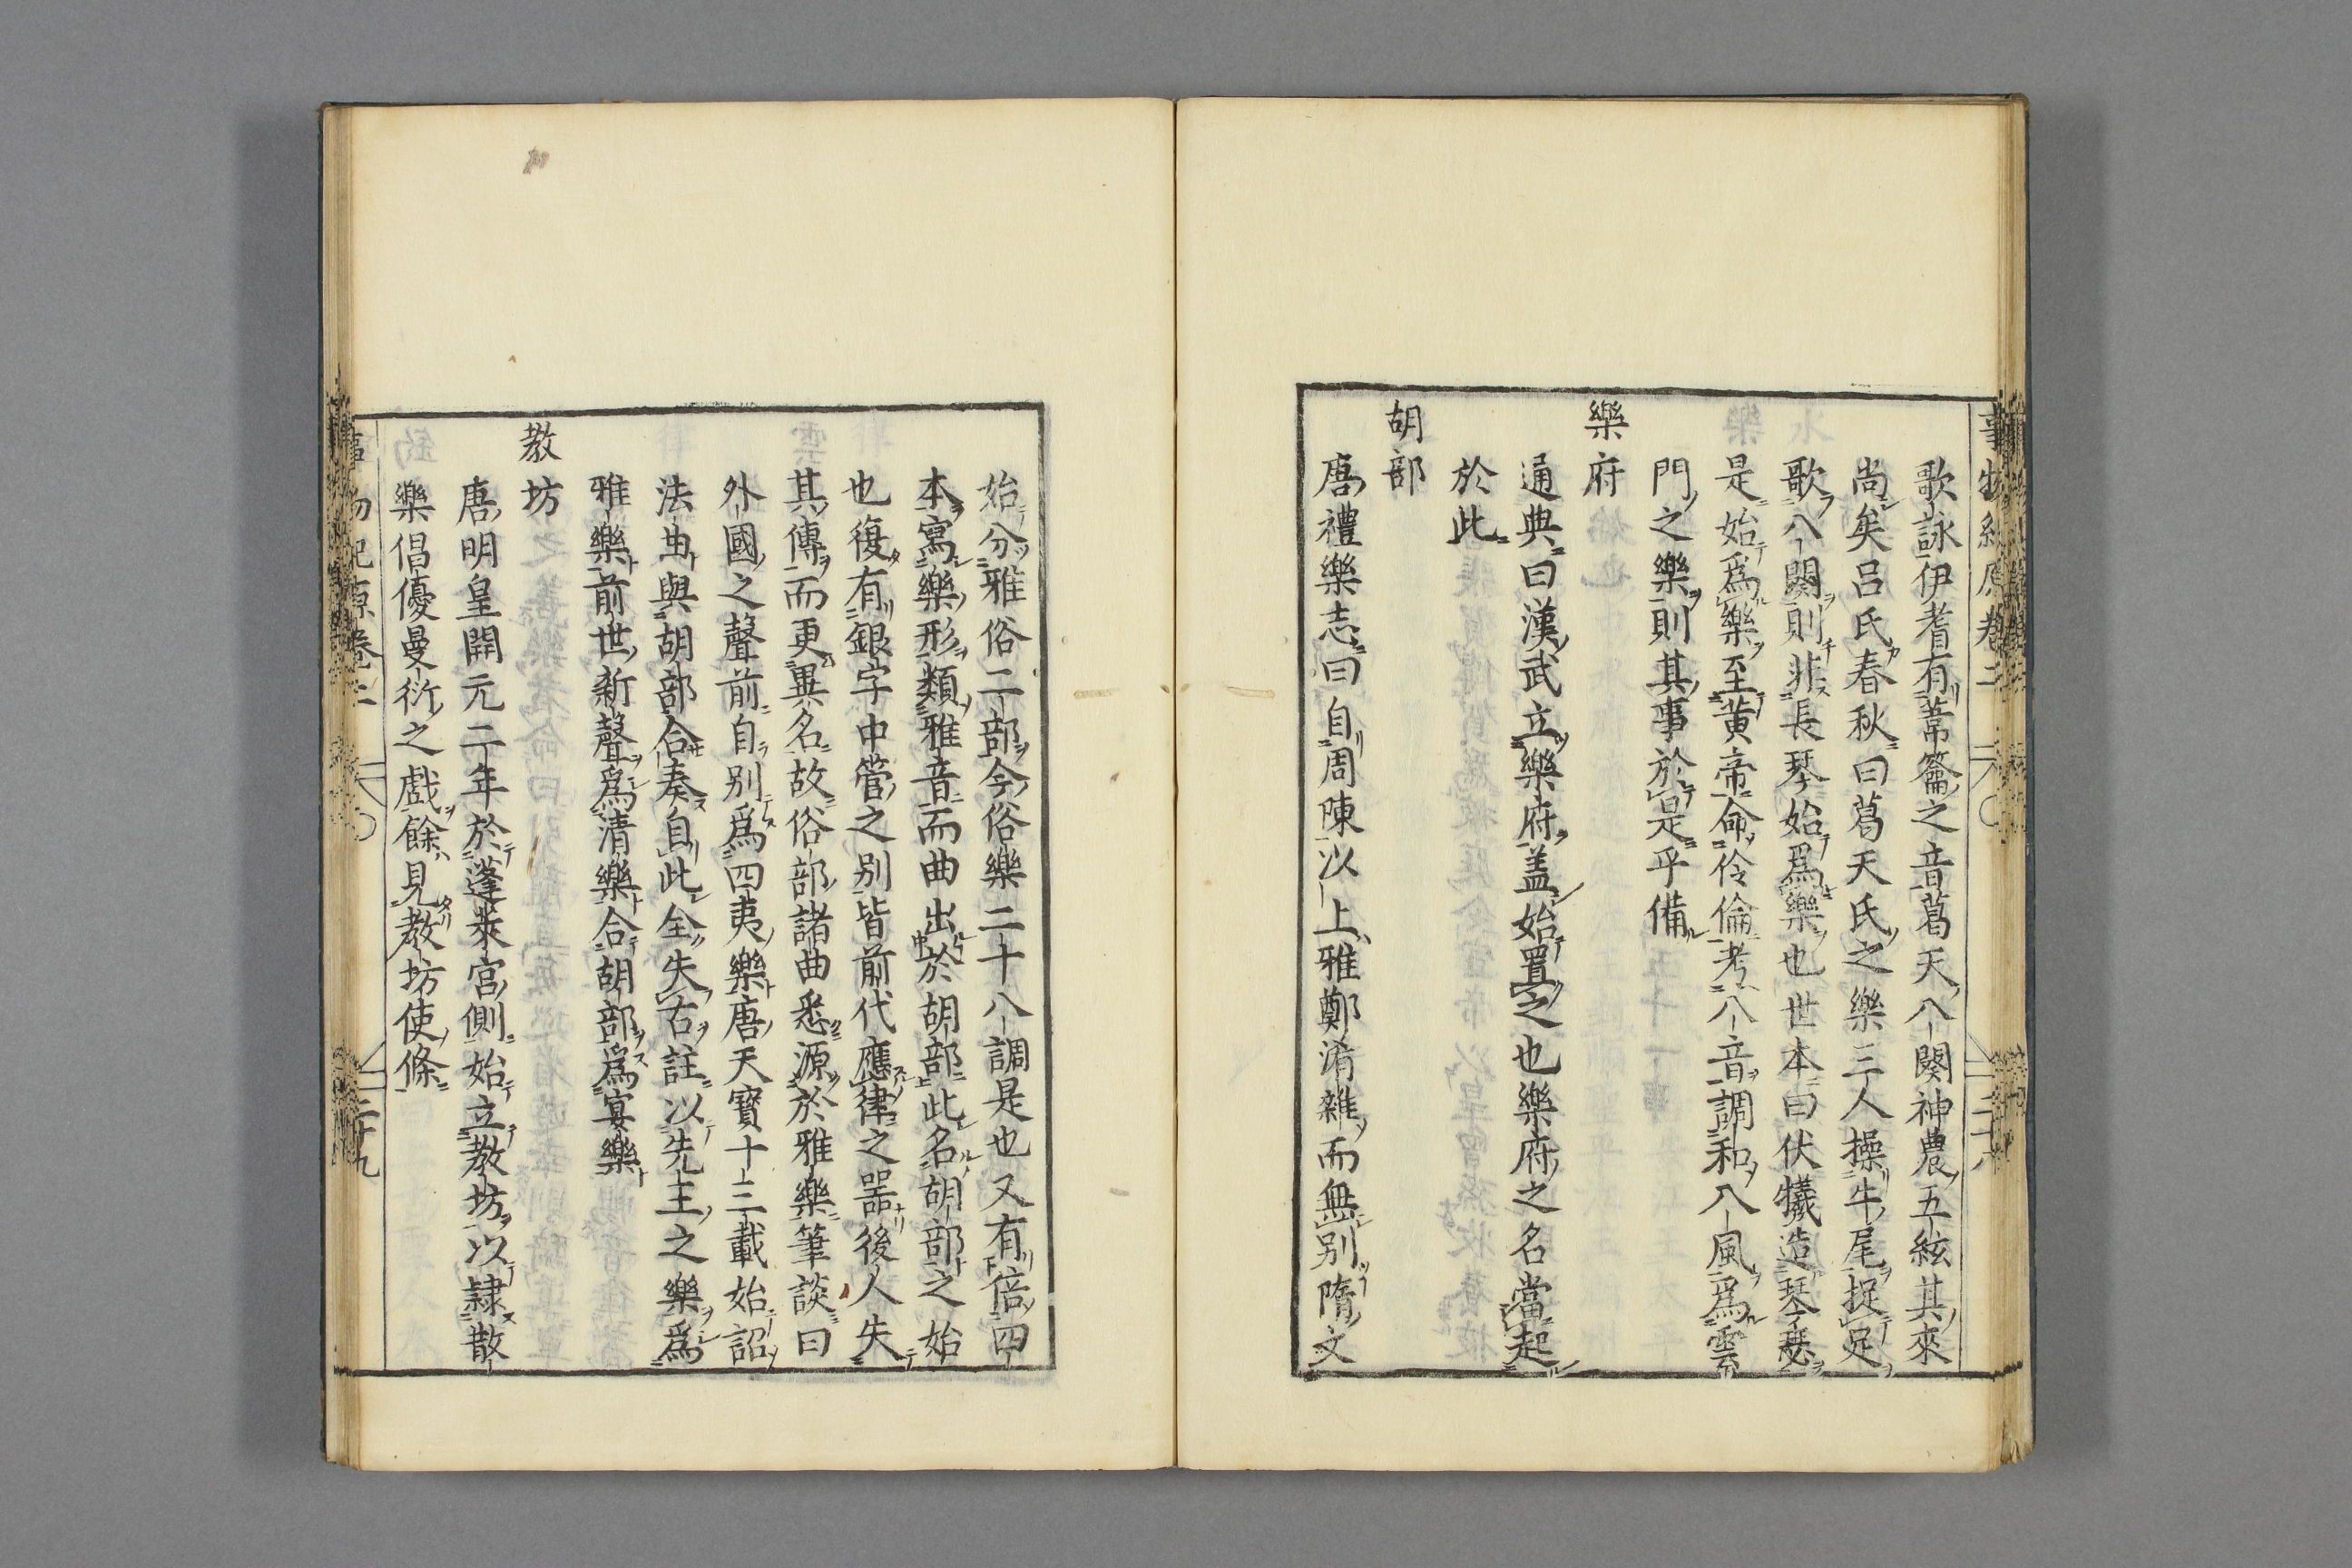 歌詠伊耆有葦籥之音葛天八闋神農五絃其來
尚矣呂氏春秋曰葛天氏之樂三人操牛尾捉足
歌八闋則非長琴始爲樂也世本曰伏犧造琴瑟
是始爲樂至黄帝命伶倫考八音調和八風爲雲
門之樂則其事於是乎備
樂府
通典曰漢武立樂府盖始置之也樂府之名當起
於此
胡部
唐禮樂志曰自周陳以上雅鄭淆雜而無别隋文
始分雅俗二部今俗樂二十八調是也又有倍四
本寫樂形類雅音而曲出於胡部此名胡部之始
也復有銀字中管之别皆前代應律之噐後人失
其傳而更異名故俗部諸曲悉源於雅樂筆談曰
外國之聲前自别爲四夷樂唐天寳十三載始詔
法曲與胡部合奏自此全失古註以先王之樂爲
雅樂前世新聲爲清樂合胡部爲宴樂
教坊
唐明皇開元二年於蓬萊宫側始立教坊以隷散
樂倡優曼衍之戲餘見教坊使條